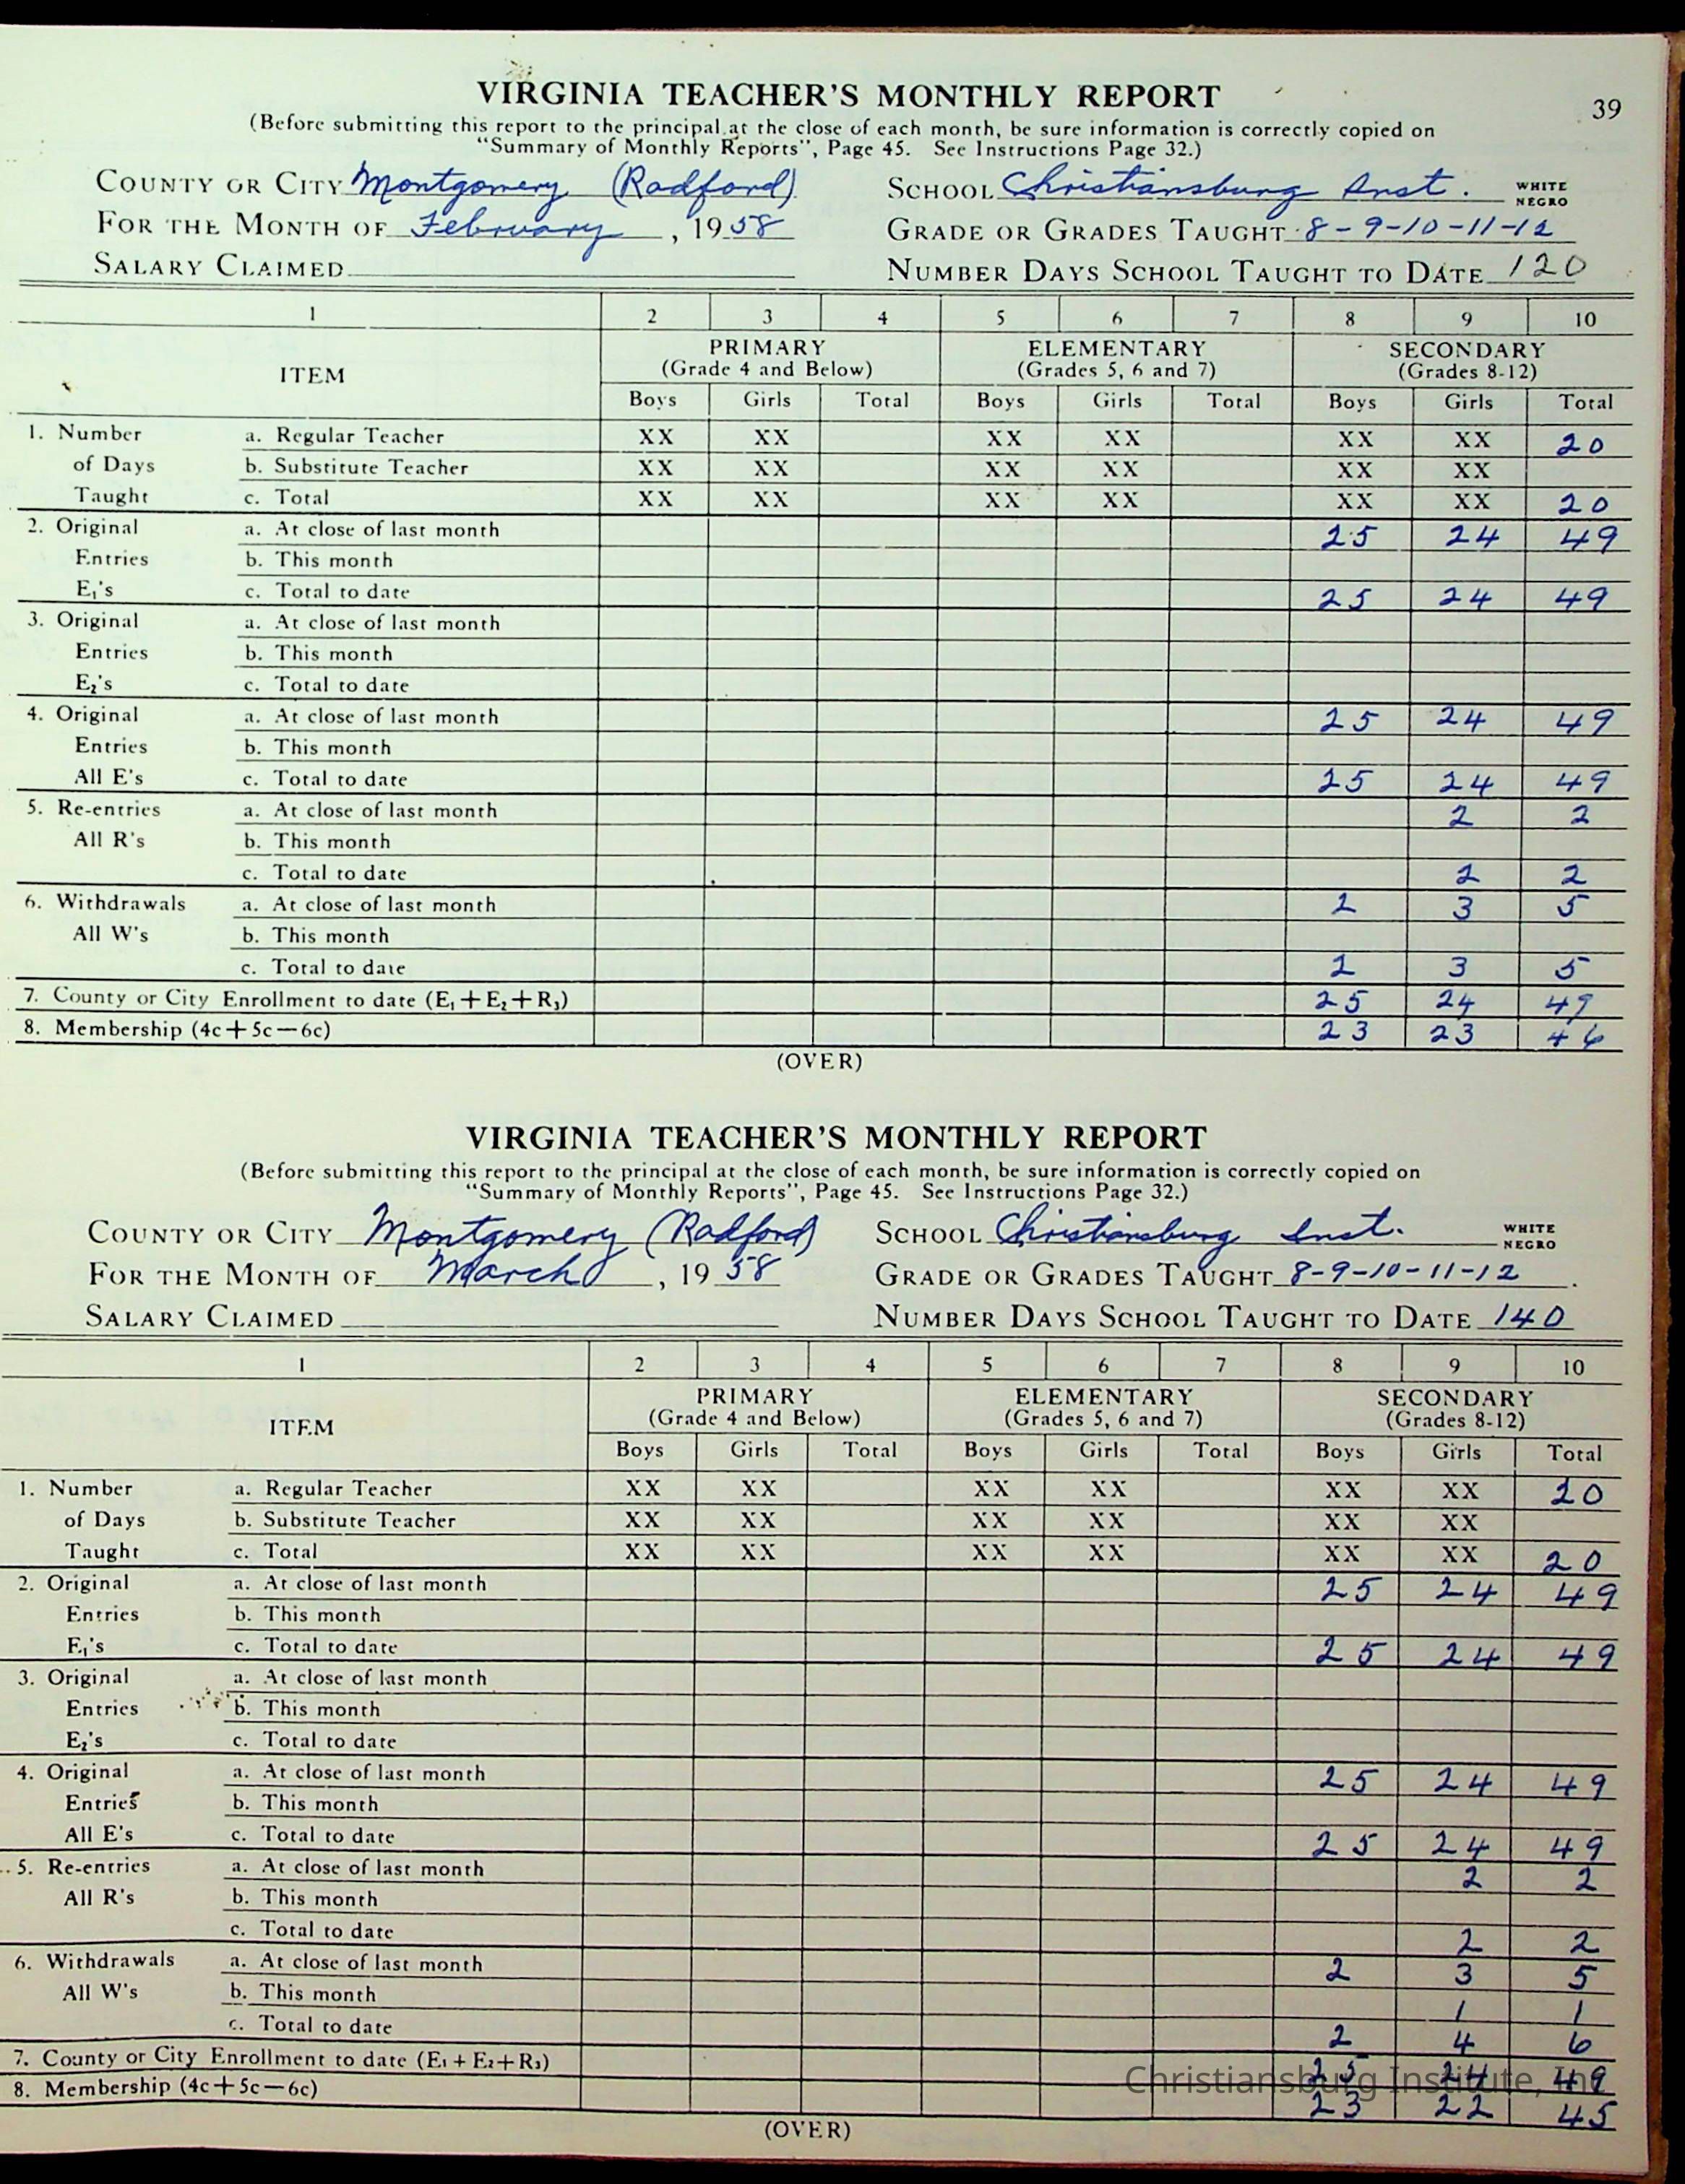 39
VIRGINIA TEACHER'S MONTHLY REPORT
(Before submitting this report to the principal at the close of each month, be sure information is correctly copied on
"Summary of Monthly Reports", Page 45. See Instructions Page 32.)
COUNTY OR CITY Montgomery (Radford) SCHOOL Christiansburg Inst. WHITE
NEGRO
FOR THE MONTH OF February, 1958 GRADE OR GRADES TAUGHT 8-9-10-11-12
SALARY CLAIMED NUMBER DAYS SCHOOL TAUGHT TO DATE 120
1 2 3 4 5 6 7 8 9 10
ITEM PRIMARY ELEMENTARY SECONDARY
(Grade 4 and Below) (Grades 5, 6 and 7) (Grades 8-12)
Boys Girls Total Boys Girls Total Boys Girls Total
1. Number a. Regular Teacher XX XX XX XX XX XX 20
of Days b. Substitute Teacher XX XX XX XX XX XX
Taught c. Total XX XX XX XX XX XX 20
2. Original a. At close of last month 25 24 49
Entries b. This month
E₁'s c. Total to date 25 24 49
3. Original a. At close of last month
Entries b. This month
E₂'s c. Total to date
4. Original a. At close of last month 25 24 49
Entries b. This month
All E's c. Total to date 25 24 49
5. Re-entries a. At close of last month 2 2
All R's b. This month
c. Total to date 2 2
6. Withdrawals a. At close of last month 2 3 5
All W's b. This month
c. Total to date 2 3 5
7. County or City Enrollment to date (E₁+E₂+R₃) 25 24 49
8. Membership (4c+5c—6c) 23 23 46
(OVER)
VIRGINIA TEACHER'S MONTHLY REPORT
(Before submitting this report to the principal at the close of each month, be sure information is correctly copied on
"Summary of Monthly Reports", Page 45. See Instructions Page 32.)
COUNTY OR CITY Montgomery (Radford) SCHOOL Christiansburg Inst. WHITE
NEGRO
FOR THE MONTH OF March, 1958 GRADE OR GRADES TAUGHT 8-9-10-11-12
SALARY CLAIMED NUMBER DAYS SCHOOL TAUGHT TO DATE 140
1 2 3 4 5 6 7 8 9 10
ITEM PRIMARY ELEMENTARY SECONDARY
(Grade 4 and Below) (Grades 5, 6 and 7) (Grades 8-12)
Boys Girls Total Boys Girls Total Boys Girls Total
1. Number a. Regular Teacher XX XX XX XX XX XX 20
of Days b. Substitute Teacher XX XX XX XX XX XX
Taught c. Total XX XX XX XX XX XX 20
2. Original a. At close of last month 25 24 49
Entries b. This month
E₁'s c. Total to date 25 24 49
3. Original a. At close of last month
Entries b. This month
E₂'s c. Total to date
4. Original a. At close of last month 25 24 49
Entries b. This month
All E's c. Total to date 25 24 49
5. Re-entries a. At close of last month 2 2
All R's b. This month
c. Total to date 2 2
6. Withdrawals a. At close of last month 2 3 5
All W's b. This month 1 1
c. Total to date 2 4 6
7. County or City Enrollment to date (E₁+E₂+R₃) 25 24 49
Christiansburg Institute, Inc
8. Membership (4c+5c—6c) 23 22 45
(OVER)